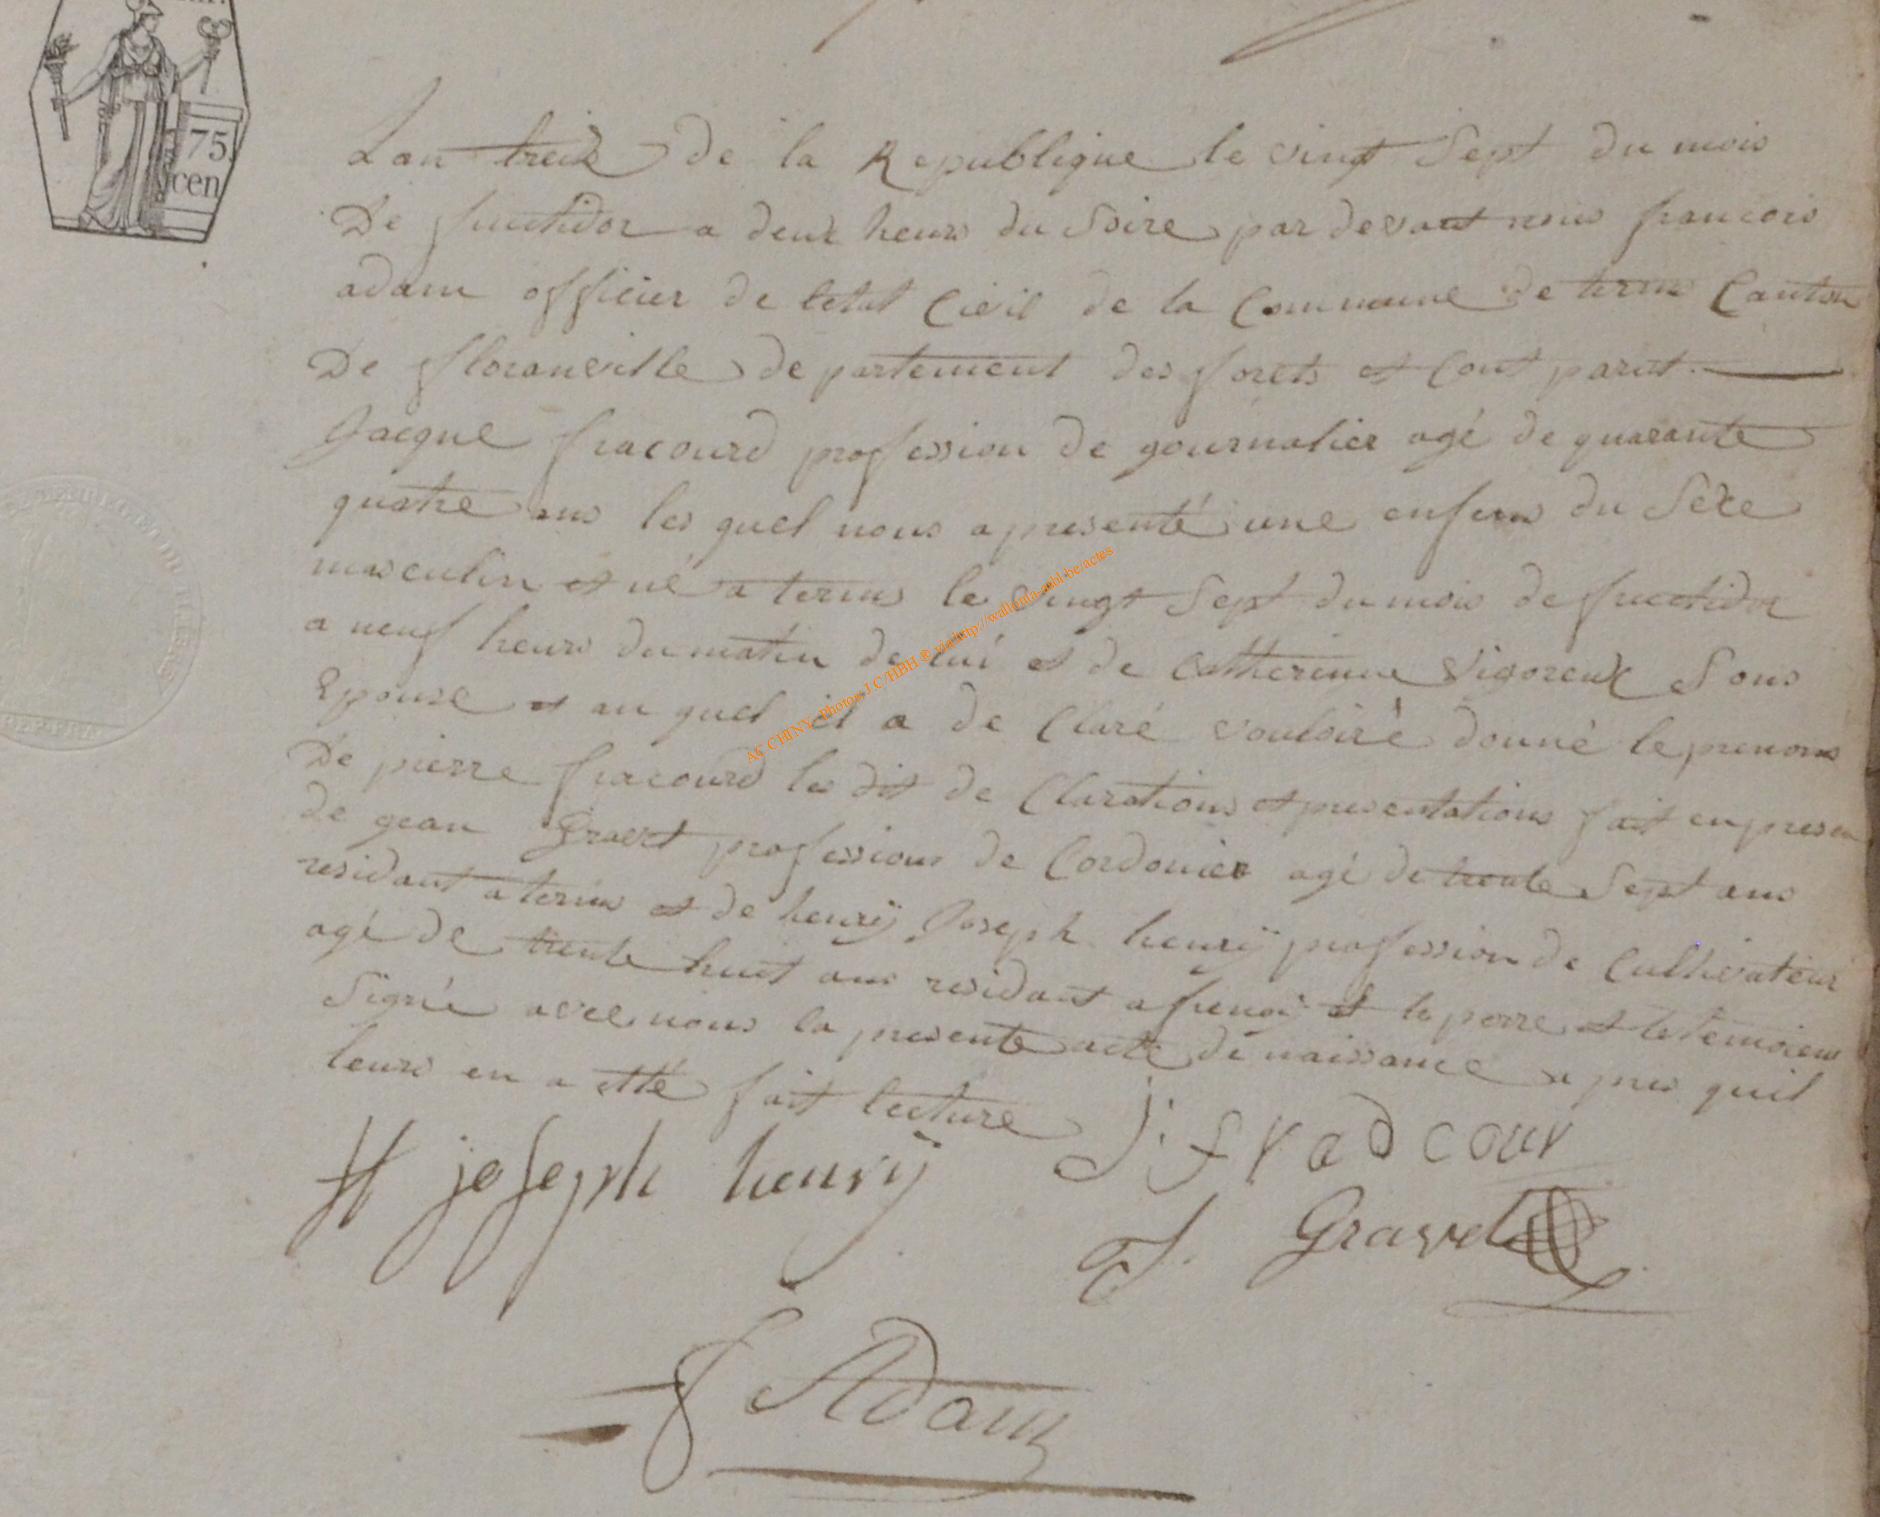 75
cen
Lan treix de la Republique le vingt Sept du mois
De fructidor a deux heurs du Soire par devant nous francois
adam officier de letat Civil de la Commune de term Canton
De floranville departement des forets et Cont parut
Jacque fracourd profession de gournalier agé de quarante
quatre ans les quel nous a presenté une enfens du Sexe
masculin et né a termes le Vingt Sept du mois de fructidor
a neuf heurs du matin de lui et de Catherinne Vigoreux Sons
Epouse et au quel il a de Claré vouloiré donné le prenoms
De pierre fracourd les dit de Clarations et presentations fait en presen
de gean Gravet professions de Cordonier agé de trente Sept ans
residant a termes et de henrÿ Joseph henrÿ profession de Cultivateur
agé de trente huit ans residant a et le perre et le temoiens
Signée avec nous la presente acte de naissance a pres quil
leurs en a etté fait lecture
H joseph henrÿ
J: fradcour
J. Gravet
f Adam
AC CHINY - Photos J C/HBH ® via http://wallonia-asbl-be/actes